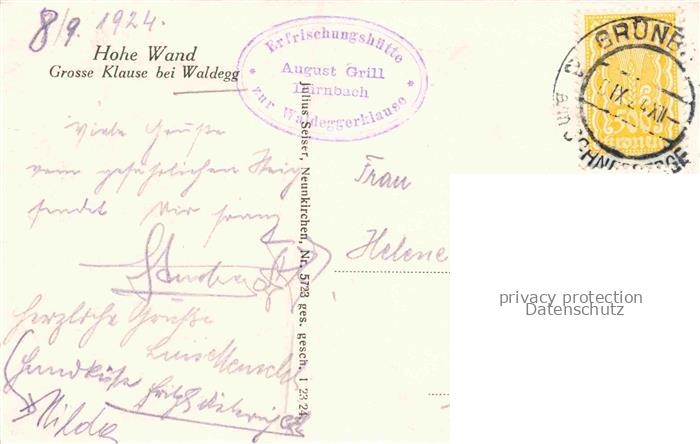 8/9. 1924.
Hohe Wand
Grosse Klause bei Waldegg
Erfrischungshütte
August Grill
Dürnbach
* zur Waldeggerklause *
GRÜNB
AM SCHNEEBERGE
500
KRONEN
Viele Grüße
vom gefährlichen Steig
sendet Dir
Herzliche Grüße
Luise
Handküsse Fritz
Hilda
Julius Seiser, Neunkirchen, Nr. 5723 ges. gesch. 1 23/24
Frau
Helene
privacy protection
Datenschutz